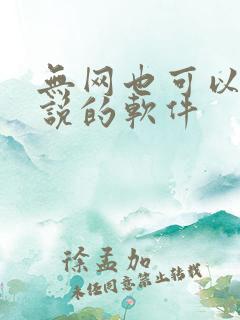 無网也可以
說的軟件
徐孟加
未经同意禁止转载